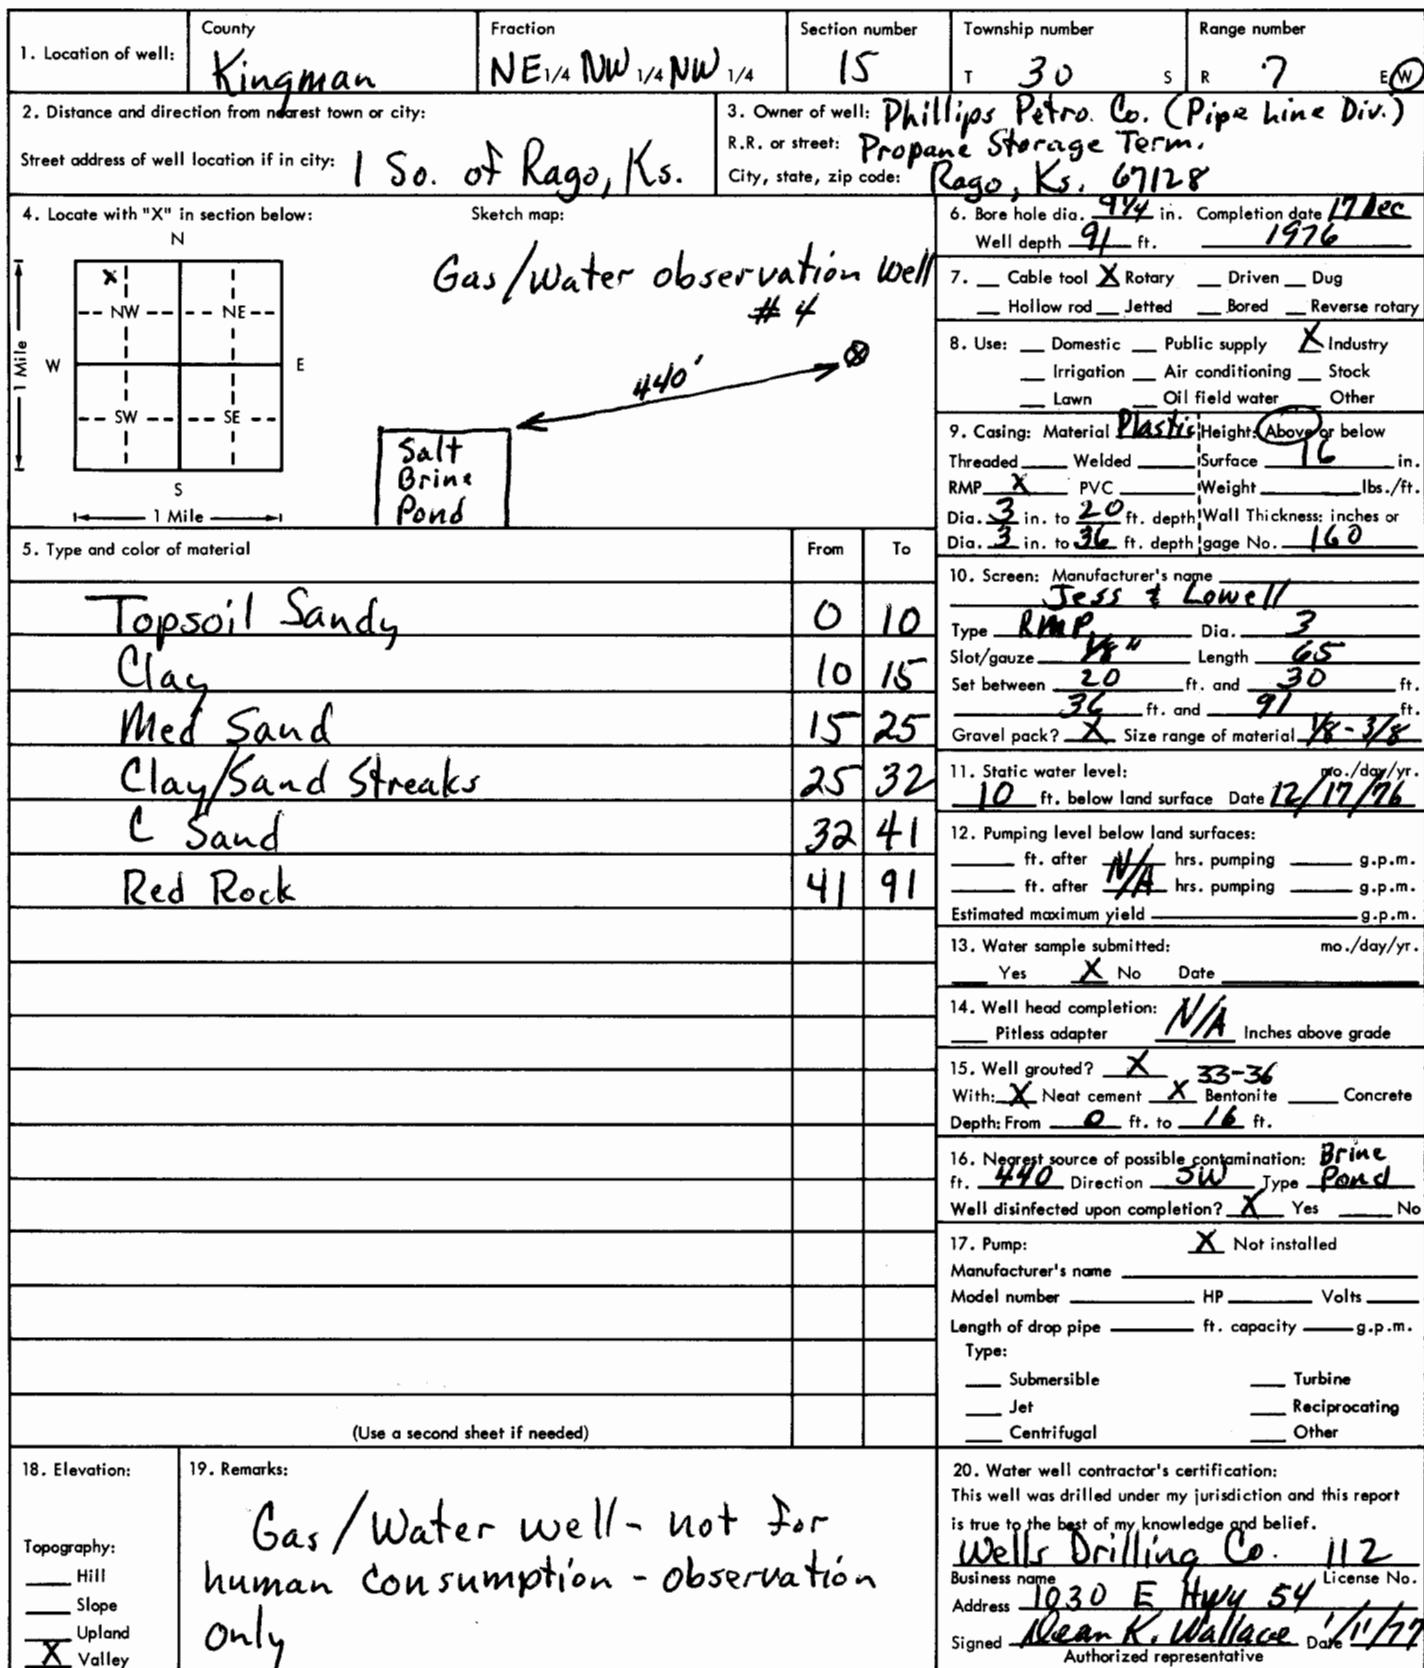 1. Location of well:
County
Kingman
Fraction
NE 1/4 NW 1/4 NW 1/4
Section number
15
Township number
T 30 S
Range number
R 7 E W
2. Distance and direction from nearest town or city:
Street address of well location if in city: 1 So. of Rago, Ks.
3. Owner of well: Phillips Petro. Co. (Pipe Line Div.)
R.R. or street: Propane Storage Term.
City, state, zip code: Rago, Ks. 67128
4. Locate with "X" in section below:
Sketch map:
N
X
NW NE
W E
SW SE
S
1 Mile
1 Mile
Gas/Water observation well
# 4
440'
Salt
Brine
Pond
5. Type and color of material From To
Topsoil Sandy 0 10
Clay 10 15
Med Sand 15 25
Clay/Sand Streaks 25 32
C Sand 32 41
Red Rock 41 91
(Use a second sheet if needed)
6. Bore hole dia. 9 1/4 in. Completion date 17 Dec
Well depth 91 ft. 1976
7. __ Cable tool X Rotary __ Driven __ Dug
__ Hollow rod __ Jetted __ Bored __ Reverse rotary
8. Use: __ Domestic __ Public supply X Industry
__ Irrigation __ Air conditioning __ Stock
__ Lawn __ Oil field water __ Other
9. Casing: Material Plastic Height: Above or below
Threaded __ Welded __ Surface 16 in.
RMP X PVC __ Weight __ lbs./ft.
Dia. 3 in. to 20 ft. depth Wall Thickness: inches or
Dia. 3 in. to 36 ft. depth gage No. 160
10. Screen: Manufacturer's name
Jess & Lowell
Type RMP Dia. 3
Slot/gauze 1/8" Length 65
Set between 20 ft. and 30 ft.
36 ft. and 91 ft.
Gravel pack? X Size range of material 1/8 - 3/8
11. Static water level: mo./day/yr.
10 ft. below land surface Date 12/17/76
12. Pumping level below land surfaces:
__ ft. after N/A hrs. pumping __ g.p.m.
__ ft. after N/A hrs. pumping __ g.p.m.
Estimated maximum yield __ g.p.m.
13. Water sample submitted: mo./day/yr.
__ Yes X No Date __
14. Well head completion:
__ Pitless adapter N/A Inches above grade
15. Well grouted? X 33-36
With: X Neat cement X Bentonite __ Concrete
Depth: From 0 ft. to 16 ft.
16. Nearest source of possible contamination: Brine
ft. 440 Direction SW Type Pond
Well disinfected upon completion? X Yes __ No
17. Pump: X Not installed
Manufacturer's name __
Model number __ HP __ Volts __
Length of drop pipe __ ft. capacity __ g.p.m.
Type:
__ Submersible __ Turbine
__ Jet __ Reciprocating
__ Centrifugal __ Other
18. Elevation:
Topography:
__ Hill
__ Slope
__ Upland
X Valley
19. Remarks:
Gas/Water well - not for
human consumption - observation
only
20. Water well contractor's certification:
This well was drilled under my jurisdiction and this report
is true to the best of my knowledge and belief.
Wells Drilling Co. 112
Business name License No.
Address 1030 E Hwy 54
Signed Dean K. Wallace Date 1/11/77
Authorized representative